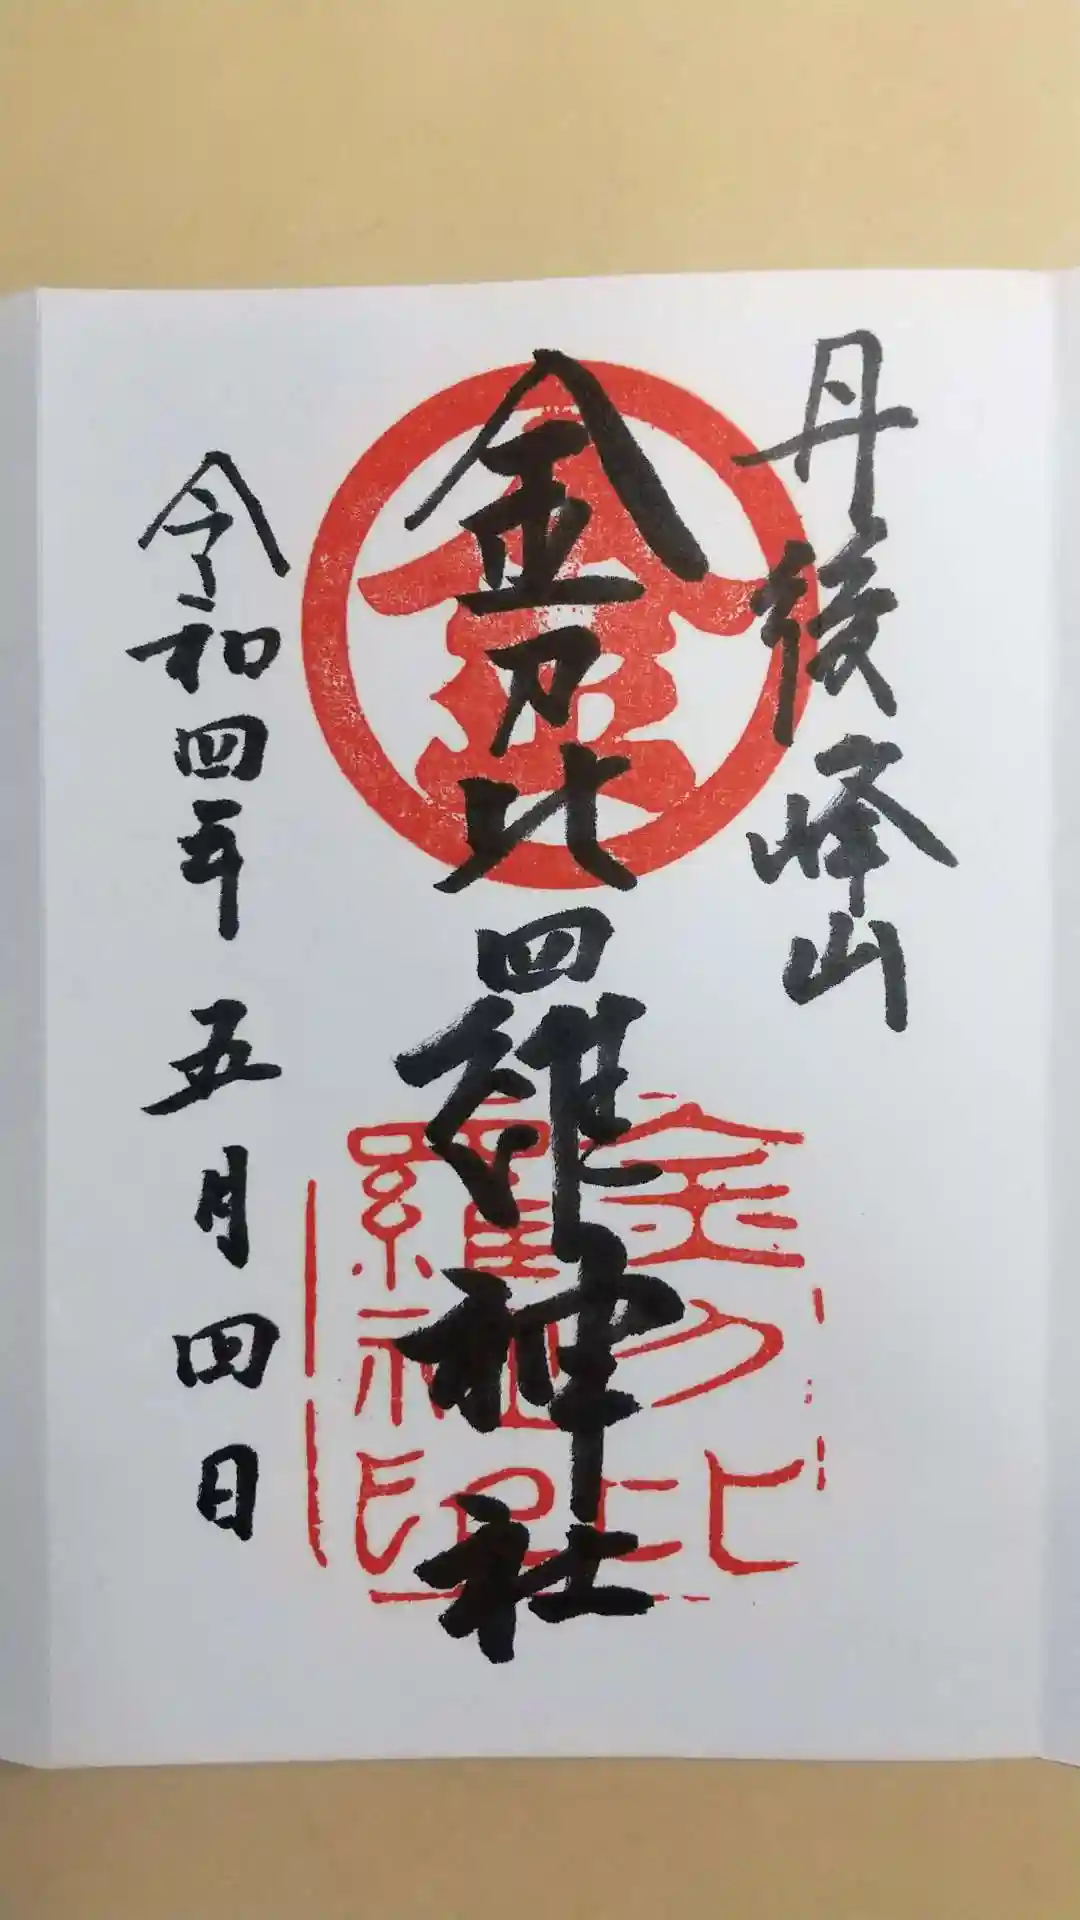 丹後峰山
金刀比羅神社
令和四年五月四日
金
金刀比
羅神社印